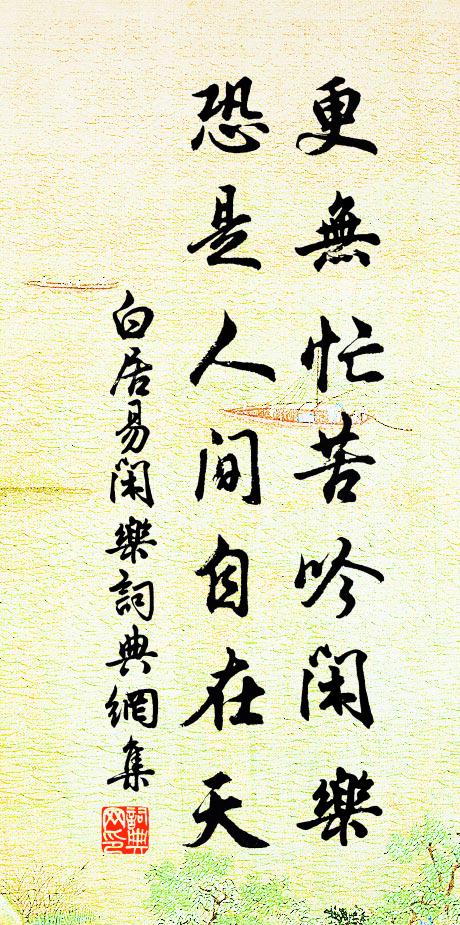 更無忙苦吟閑樂
恐是人間自在天
白居易閑樂詞典網集
詞典網印